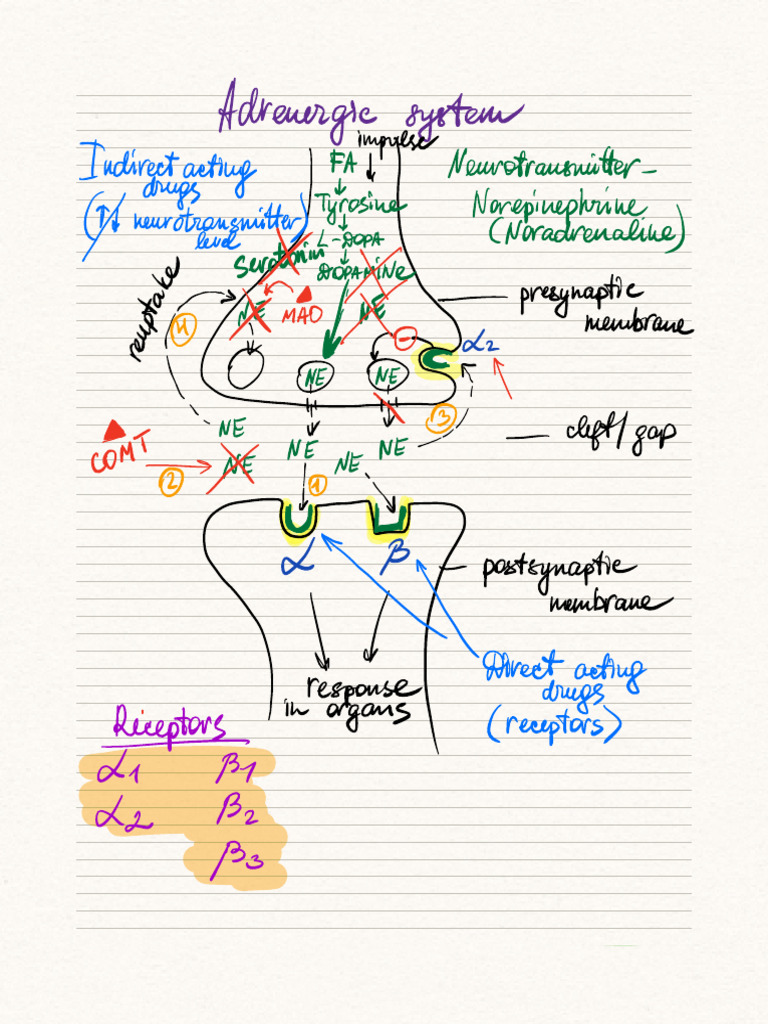 Adrenergic system
impulse
Indirect acting
drugs
(↑↓ neurotransmitter
level)
FA
Tyrosine
L-DOPA
DOPAMINE
Serotonin
Neurotransmitter -
Norepinephrine
(Noradrenaline)
reuptake
4
NE
MAO
NE
presynaptic
membrane
α2
NE
NE
3
NE
NE
NE
NE
cleft/gap
COMT
2
NE
1
α
β
postsynaptic
membrane
response
in organs
Direct acting
drugs
(receptors)
Riceptors
α1 β1
α2 β2
β3